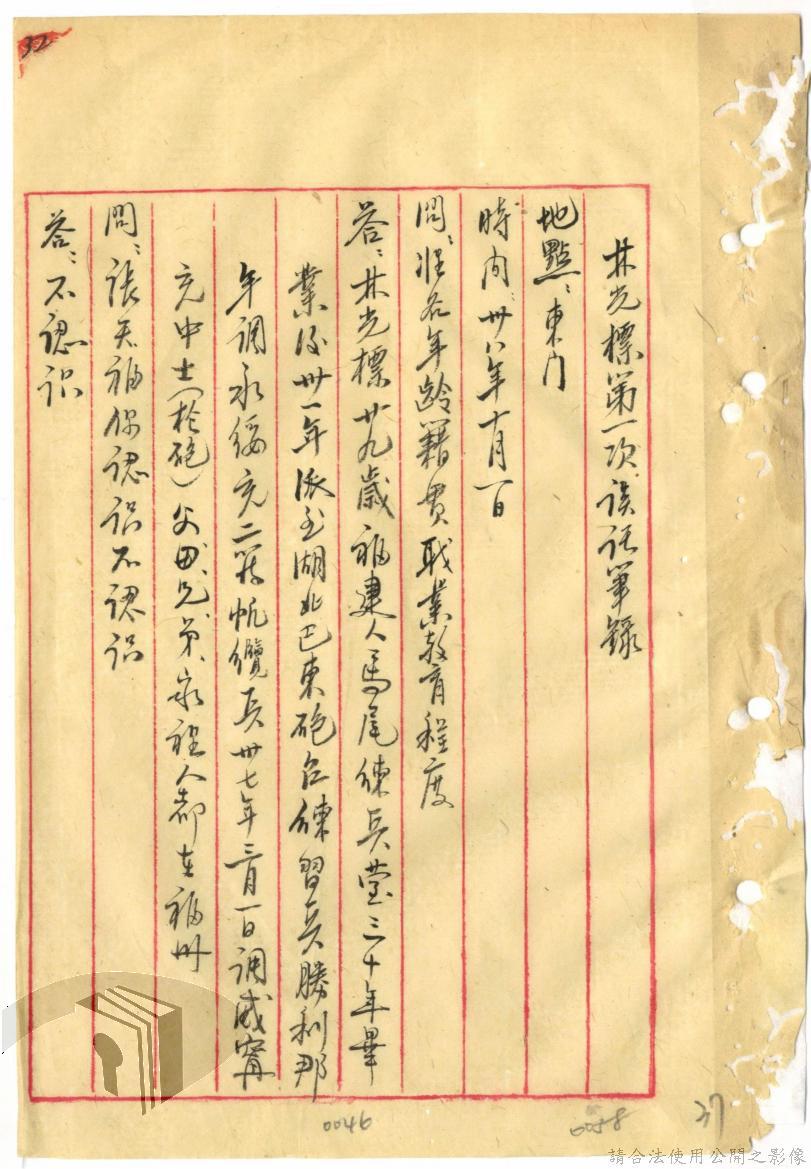 32
林光標第一次談話筆錄
地點:東门
時間:卅八年十月一日
問:姓名年齡籍貫職業教育程度
答:林光標廿九歲福建人馬尾練兵營三十年畢
業後卅一年派至湖北巴東砲台練習兵勝利那
年調永綏充二等帆纜兵卅七年三月一日調咸寧
充中士(槍砲)父母、兄、弟、家裡人都在福州
問:張天福你認识不認识
答:不認识
0046
0058
37
請合法使用公開之影像